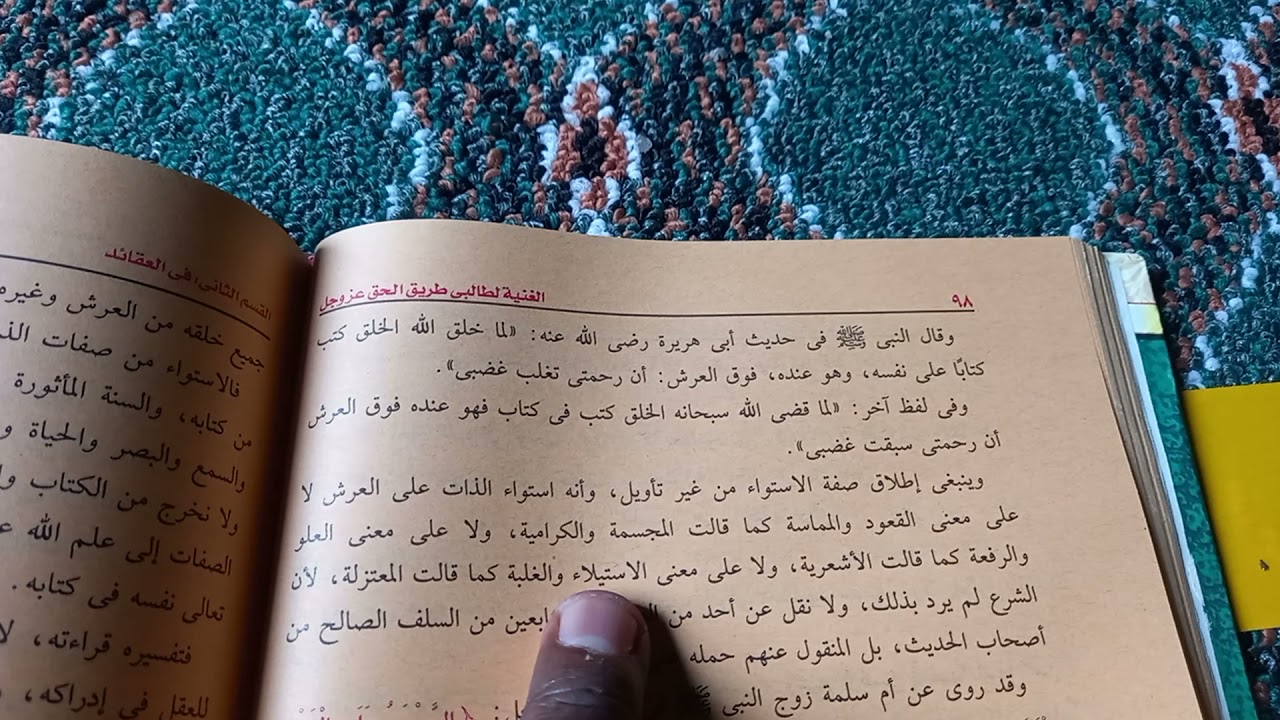 الغنية لطالبى طريق الحق عز وجل
٩٨
وقال النبى ﷺ فى حديث أبى هريرة رضى الله عنه: «لما خلق الله الخلق كتب
كتابًا على نفسه، وهو عنده، فوق العرش: أن رحمتى تغلب غضبى».
وفى لفظ آخر: «لما قضى الله سبحانه الخلق كتب فى كتاب فهو عنده فوق العرش
أن رحمتى سبقت غضبى».
وينبغى إطلاق صفة الاستواء من غير تأويل، وأنه استواء الذات على العرش لا
على معنى القعود والمماسة كما قالت المجسمة والكرامية، ولا على معنى العلو
والرفعة كما قالت الأشعرية، ولا على معنى الاستيلاء والغلبة كما قالت المعتزلة، لأن
الشرع لم يرد بذلك، ولا نقل عن أحد من ابعين من السلف الصالح من
أصحاب الحديث، بل المنقول عنهم حمله
وقد روى عن أم سلمة زوج النبى
القسم الثانى: فى العقائد
جميع خلقه من العرش وغيره
فالاستواء من صفات الذ
من كتابه، والسنة المأثورة
والسمع والبصر والحياة و
ولا نخرج من الكتاب وا
الصفات إلى علم الله ع
تعالى نفسه فى كتابه.
فتفسيره قراءته، لا
للعقل في إدراكه،